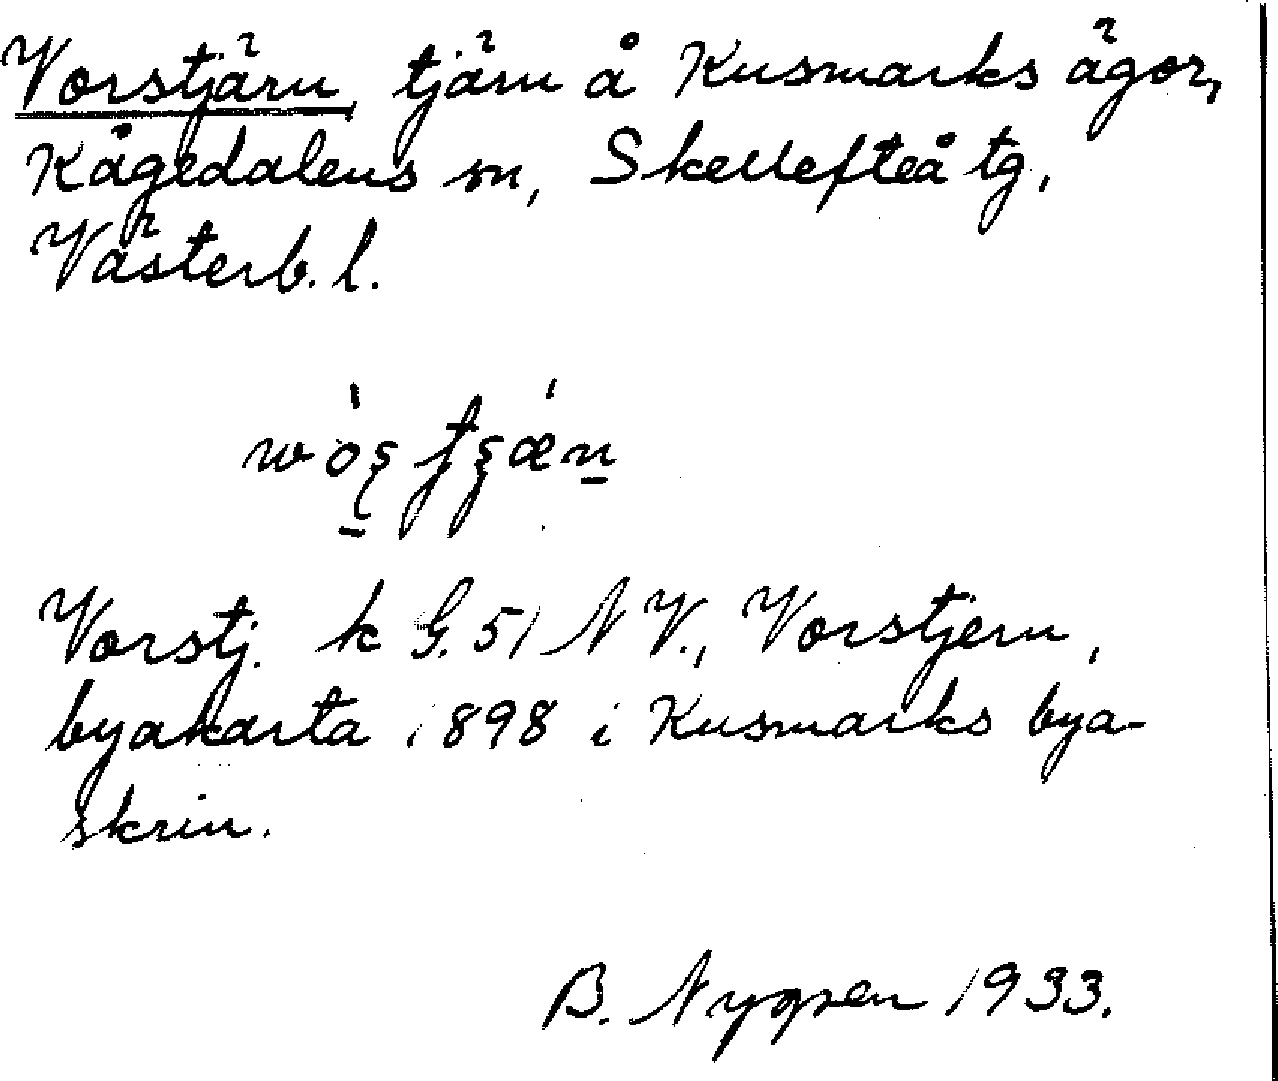 Vorstjärn, tjärn å Kusmarks ägor,
Kågedalens sn, Skellefteå tg,
Västerb. l.
Vorstj. k G. 51 NV., Vorstjern,
byakarta 1898 i Kusmarks bya-
skrin.
B. Nygren 1933.